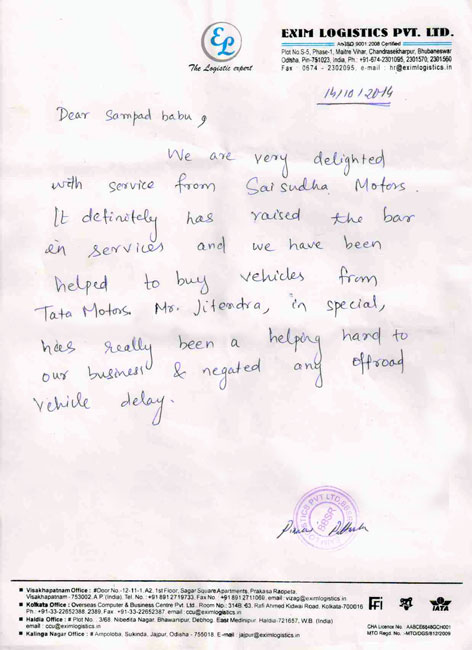 EL
The Logistic expert
EXIM LOGISTICS PVT. LTD.
An ISO 9001:2008 Certified
Plot No.S-5, Phase-1, Maitre Vihar, Chandrasekharpur, Bhubaneswar
Odisha, Pin-751023, India, Ph.: +91-674-2301095, 2301570, 2301560
Fax 0674 - 2302095, e-mail : hr@eximlogistics.in
14/10/2014
Dear Sampad babu,
We are very delighted
with service from Sai sudha Motors.
It definitely has raised the bar
in services and we have been
helped to buy vehicles from
Tata Motors. Mr. Jitendra, in special,
has really been a helping hand to
our business & negated any offroad
vehicle delay.
BBSR
Visakhapatnam Office : #Door No.-12-11-1, A2, 1st Floor, Sagar Square Apartments, Prakasa Raopeta,
Visakhapatnam - 753002. A.P. (India), Tel. No. +91 891 2719733, Fax No. +91 891 2711069, email: vizag@eximlogistics.in
Kolkata Office : Overseas Computer & Business Centre Pvt. Ltd., Room No.: 314B, 63, Rafi Ahmed Kidwai Road, Kolkata-700016
Ph. +91-33-22652388, 2389, Fax, +91-33-22652387 email : ccu@eximlogistics.in
Haldia Office : # Plot No. : 3/68 Nibedita Nagar, Bhawanipur, Debhog, East Medinipur, Haldia-721657, W.B. (India)
email : ccu@eximlogistics.in
Kalinga Nagar Office : # Ampoloba, Sukinda, Jajpur, Odisha - 755018, E-mail : jajpur@eximlogistics.in
FFI
IATA
CHA Licence No.
MTO Regd. No.